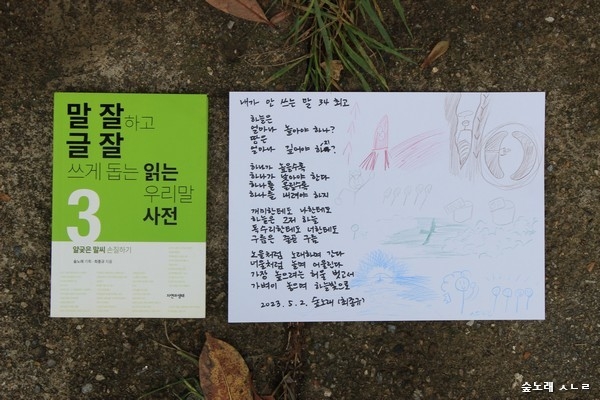 말 잘하고
글 잘
쓰게 돕는 읽는
우리말
3 사전
말꽃은 말씨 손질하기
숲노래 기획 최종규 지음
자연과생태
내가 안 쓰는 말 34 최고
하늘은
얼마나 높아야 하나?
땅은
얼마나 깊어야 하지?
하나가 높을수록
하나가 낮아야 한다
하나를 올릴수록
하나를 내려야 하지
개미한테도 나한테도
하늘은 그저 하늘
독수리한테도 너한테도
구름은 늘 구름
노을처럼 노래하며 간다
너울처럼 놀며 어울린다
가장 높으려는 허울 벗고서
가벼이 놀으며 하늘빛으로
2023. 5. 2. 숲노래 (최종규)
숲노래 ㅅㄴㄹ